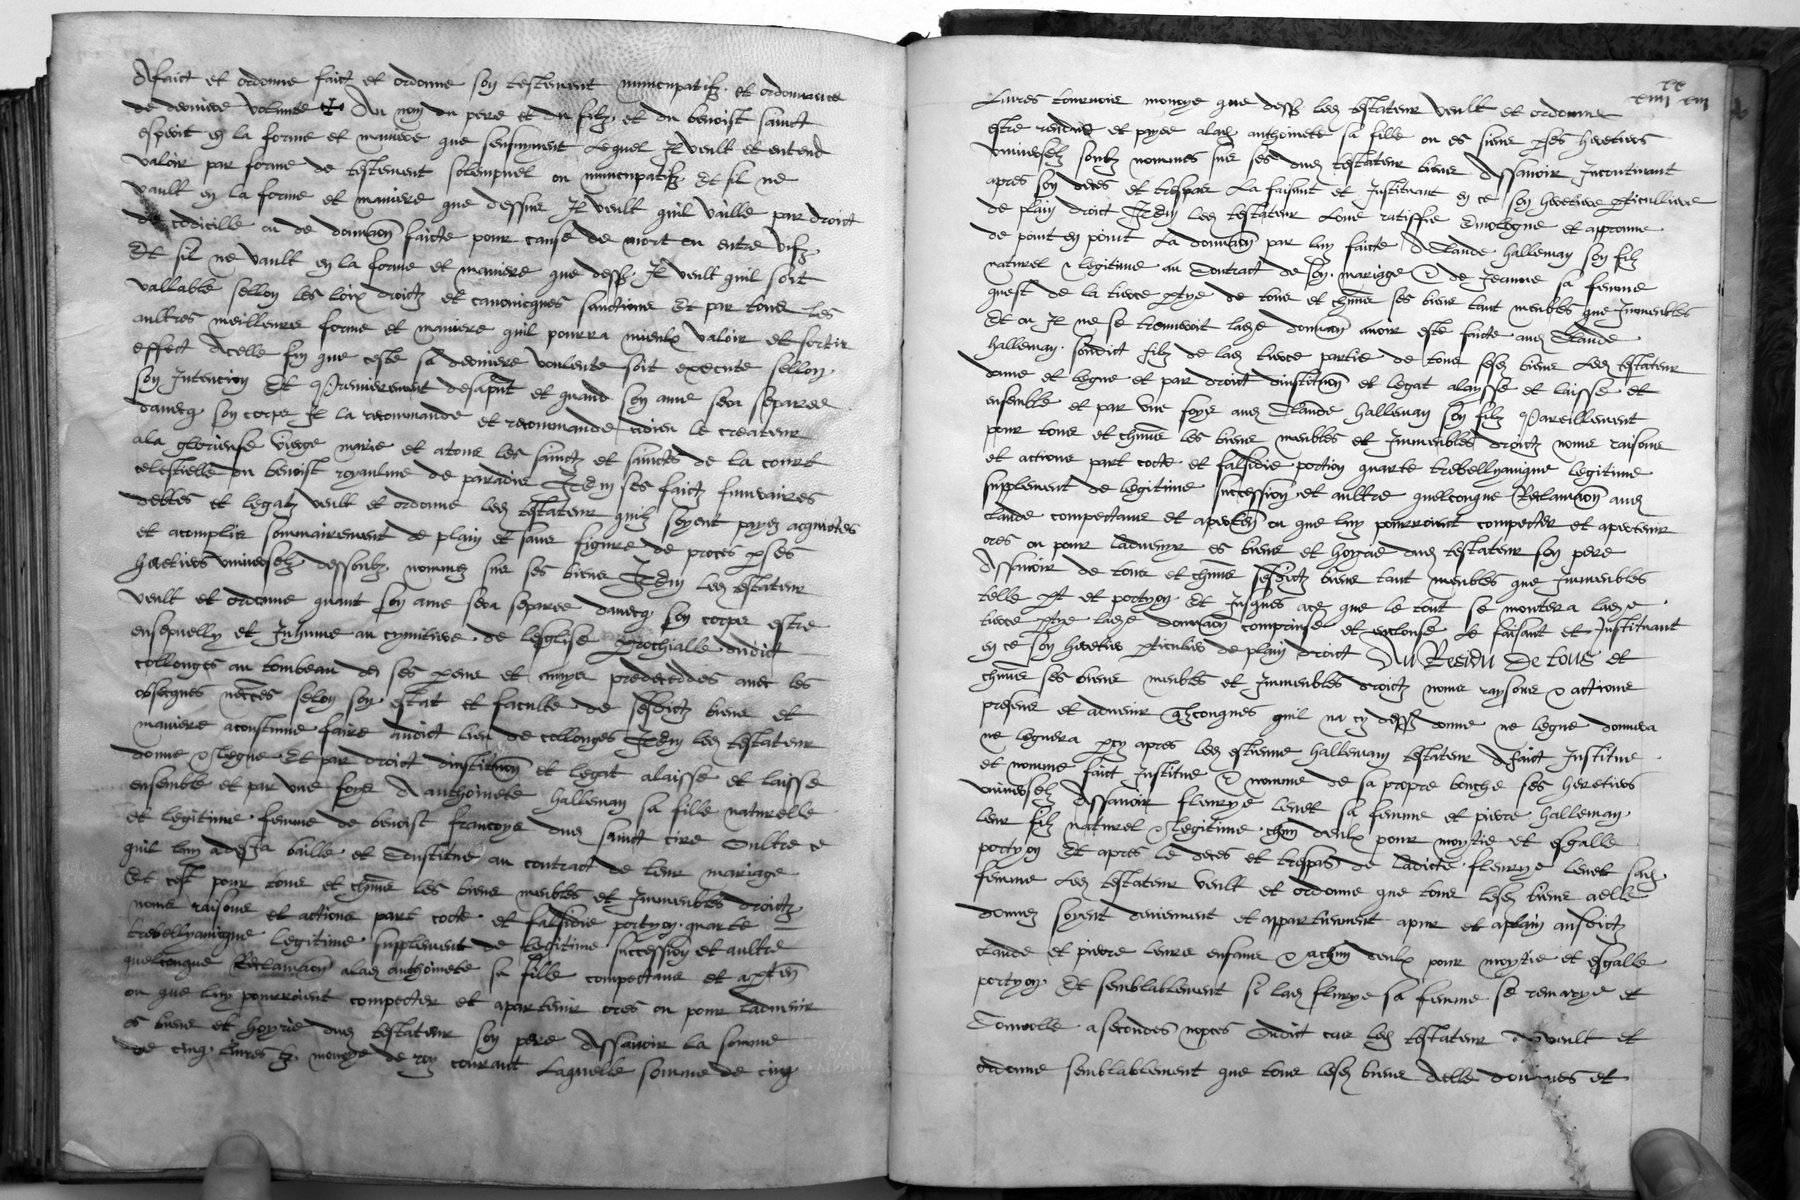 A faict et ordonne faict et ordonne son testement nuncupatifz et ordonnance
de derniere volunte ✠ Au nom du pere et du filz et du benoist sainct
esperit en la forme et maniere que sensuyvent Lequel Il veult et entend
valoir par forme de testement solempnel ou nuncupatifz Et sil ne
vault en la forme et maniere que dessus Il veult quil vaille par droit
de codicille ou de donnaon faicte pour cause de mort ou entre vifz
Et sil ne vault en la forme et maniere que dessz Il veult quil soit
vallable sellon les loix droictz et canonicques sanctions Et par tous les
aultres meilleures forme et maniere quil pourra mieulx valoir et sortir
effect Acelle fin que ceste sa derniere voulente soit execute sellon
son Intencion Et Premierement desapnt et quand son ame sera separee
davecq son corps Il la recommande et recommande adieu le createur
ala glorieuse vierge marie et atous les sainctz et sainctes de la court
celestielle du benoist royaulme de paradis Item ses faictz funeraires
debtes et legatz veult et ordonne led testateur quilz soyent payez acquictes
et acomplis sommairement de plain et sans figure de proces p ses
heretiers universelz dessoubz nommez sus ses biens Item led testateur
veult et ordonne quant son ame sera separee davecq son corps estre
ensepuelly et Inhume au cymitiere de leglise prochialle dudict
collonges au tombeau de ses pere et mere predecedes avec les
obseques necces selon son estat et faculte de sesdictz biens et
maniere acoustume faire audict lieu de collonges Item led testateur
donne & legue Et par droit dinstitution et legat alaisse et laisse
ensemble et par une foys A anthoinete halleman sa fille naturelle
et legitime femme de benoist francoys dud sainct cire Oultre ce
quil luy a desja baille et Constitue au contract de leur mariage
Et cest pour tous et chms les biens meubles et Immeubles droictz
noms raisons et actions part cocte et falsidie portyon quarte
trebellyanicque legitime supplement de legitime succession et aultre
quelconque Reclamaon alad anthoinete sa fille compectans et aptens
ou que luy pourroient compecter et apartenir ores ou pour ladvenir
es biens et hoyrie dud testateur son pere Assavoir la somme
de cinq livres tz monoye de roy courant Laquelle somme de cinq
xx
xiiii xiii
Livres tournois monoye que dessz led testateur veult et ordonne
estre rendue et payee alad anthoinete sa fille ou es siens p ses heretiers
universelz soubz nommes sus ses dud testateur biens Assavoir Incontinant
apres son deces et trespas La faisant et Instituant en ce son heretiere pticulliere
de plain droict Item led testateur Loue ratiffie Emologue et approuve
de point en point La donnaon par luy faicte A Claude halleman son filz
naturel & legitime au Contract de son mariage & de Jeanne sa femme
quest de la tierce ptye de tous et chms ses biens tant meubles que Immeubles
Et ou Il ne se trouveroit lade donnaon avoir este faicte aud Claude
halleman sondict filz de lad tierce partie de tous sesd biens Led testateur
donne et legue et par droit dinstituon et legat alaysse et laisse et
ensemble et par une foys aud Claude halleman son filz Pareillement
pour tous et chms les biens meubles et Immeubles droictz noms raisons
et actions part cocte et falsidie portion quarte trebellyanique legitime
supplement de legitime succession et aultre quelconque Reclamaon aud
claude compectans et apertens ou que luy pourroient compecter et apartenir
ores ou pour ladvenir es biens et hoyrie dud testateur son pere
Assavoir de tous et chms sesdictz biens tant meubles que Immeubles
telle pt et portyon Et Jusques ace que le tout se montera lade
tierce ptye lade donnaon comprinse et enclouse Le faisant et Instituant
en ce son heretier pticulier de plain droict AU RESIDU DE TOUS et
chms ses biens meubles et Immeubles droictz noms raysons & actions
presens et advenir qlzconques quil na cy dessz donne ne legue donnera
ne leguera pcy apres led estienne halleman testateur A faict Institue
et nomme faict Institue & nomme de sa propre bouche ses heretiers
universelz Assavoir fleurye levet sa femme et pierre halleman
leur filz naturel & legitime chm deulx pour moytie et esgalle
portyon Et apres le deces et trespas de ladicte fleurye levet sad
femme Led testateur veult et ordonne que tous lesd biens aelle
donnez soyent deviennent et appartiennent apur et aplain ausdictz
claude et pierre leurs enfans & achm deulx pour moytie et esgalle
portyon Et semblablement si lad fleurye sa femme se remarye et
Convolle asecondes nopces Oudict cas led testateur veult et
ordonne semblablement que tous lesd biens Aelle donnes et